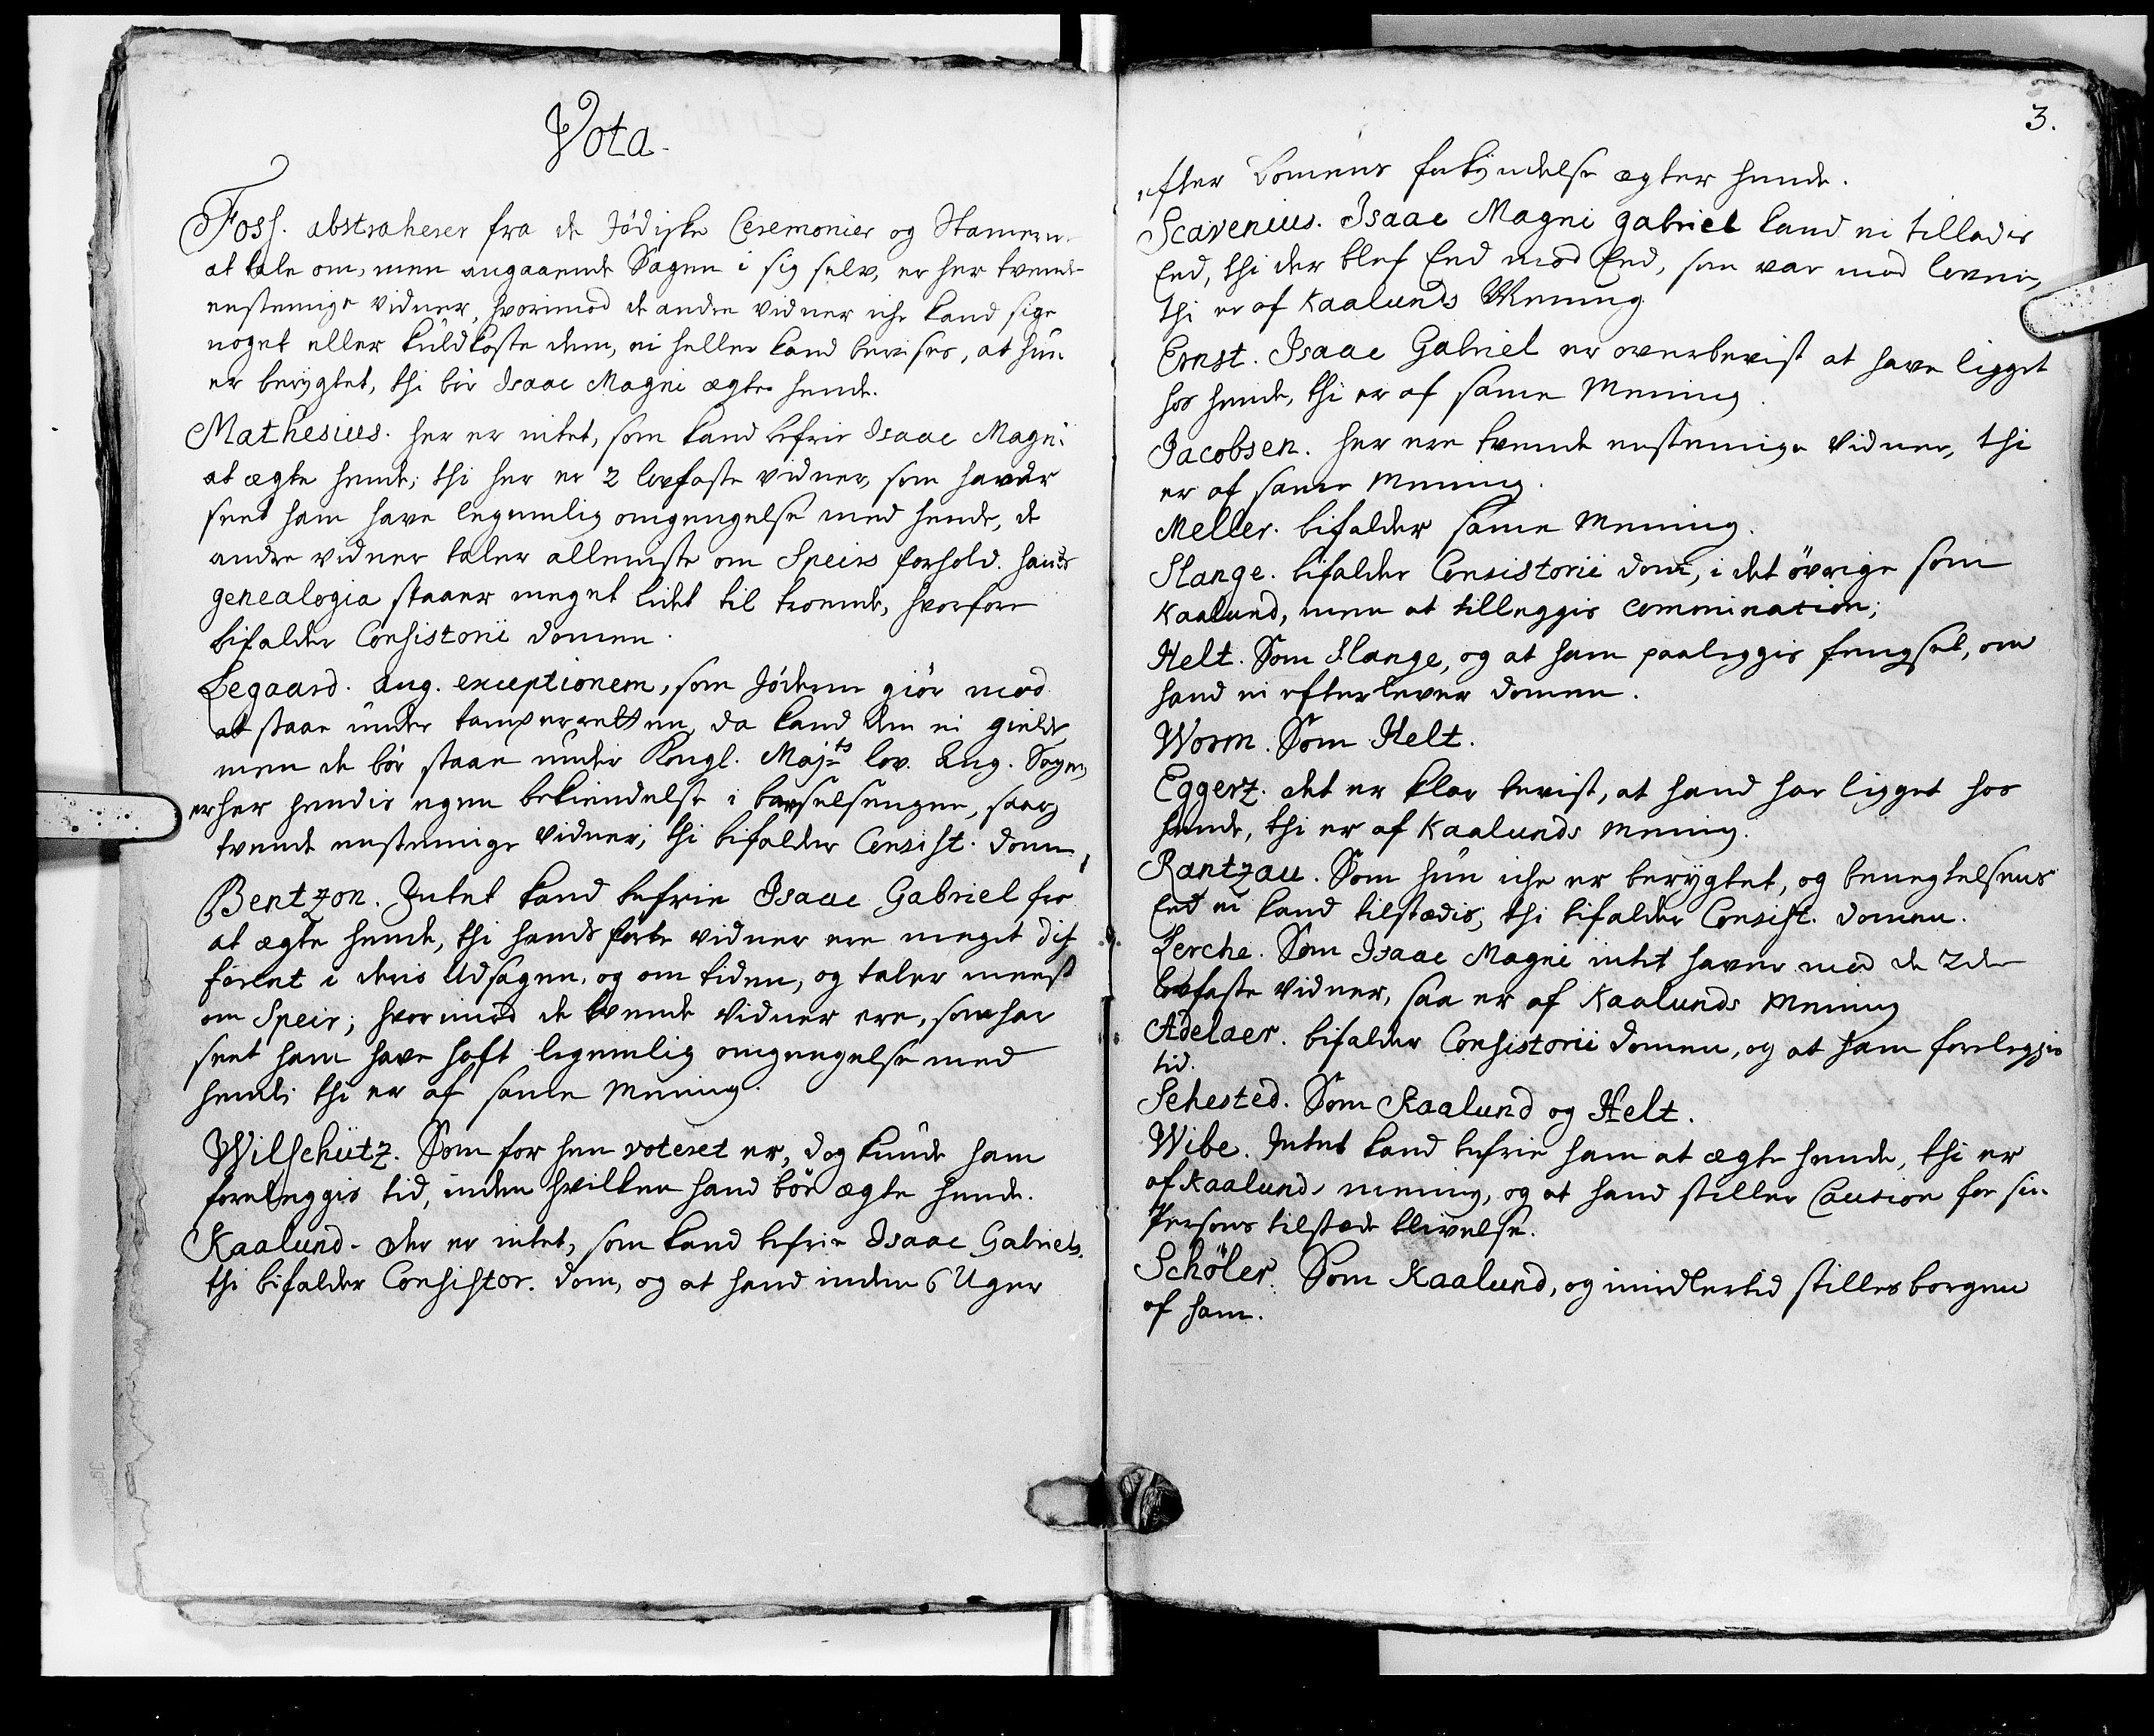 Vota.
Foss. abstraherer fra de Jödiske Ceremonier og Stamern
at tale om, men angaaende Sagen i sig selv, er her tvende
enstemige vidner, hvorimod de andre vidner iche kand sige
noget eller kuldkaste dem, ei heller kand bevises, at hun
er berygtet, thi bör Isaac Magni ægte hende.
Mathesius. her er intet, som kand befrie Isaac Magni
at ægte hende; thi her er 2 lovfaste vidner, som haver
seet ham have legemlig omgengelse med hende, de
andre vidner taler allemeste om Speirs forhold. hands
genealogia staaer meget lidet til troende, hvorfore
bifalder Consistorii domen.
Legaard. ang. exceptionem, som Jöderne giör mod
at staae under tamperretten, da kand den ei gielde
men de bör staae under Kongl. Majts lov. Ang. Sagen,
er her hendis egen bekiendelse i barselsengen, saa og
tvende enstemige vidner; thi bifalder Consist. dom.
Bentzon. Intet kand befrie Isaac Gabriel fra
at ægte hende, thi hands förte vidner ere meget dif
ferent i deris Udsagen, og om tiden, og taler meest
om Speir; hvorimod de tvende vidner ere, som har
seet ham have haft legemlig omgengelse med
hende; thi er af samme Mening.
Wilschütz. Som for hen voteret er, dog kunde ham
foreleggis tid, inden hvilken hand bör ægte hende.
Kaalund. der er intet, som kand befrie Isaac Gabriels,
thi bifalder Consistor. dom, og at hand inden 6 Uger
3.
efter Domens forkyndelse ægter hende.
Scavenius. Isaac Magni gabriel kand ei tilladis
Eed, thi der blef Eed mod Eed, som var mod loven,
thi er af Kaalunds Mening
Ernst. Isaac Gabriel er overbevist at have ligget
hos hende, thi er af samme Mening.
Jacobsen. her ere tvende enstemige Vidner, thi
er af samme Mening.
Meller. bifalder samme Mening.
Slange. bifalder Consistorii dom, i det övrige som
Kaalund, men at tilleggis commination;
Helt. Som Slange, og at ham paaleggis fengsel, om
hand ei efterlever domen.
Worm. Som Helt.
Eggerz. det er klar bevist, at hand har ligget hos
hende, thi er af Kaalunds Mening.
Rantzau. Som hun iche er berygtet, og benegtelsens
Eed ei kand tilstædis; thi bifalder Consist. domen.
Lerche. Som Isaac Magni intet haver mod de 2de
lovfaste Vidner, saa er af Kaalunds Mening
Adelaer. bifalder Consistorii domen, og at ham foreleggis
tid.
Sehested. Som Kaalund og Helt.
Wibe. Intet kand befrie ham at ægte hende, thi er
af Kaalunds mening, og at hand stiller Caution for sin
Persons tilstæde blivelse.
Schöler. Som Kaalund, og imidlertid stilles borgen
af ham.